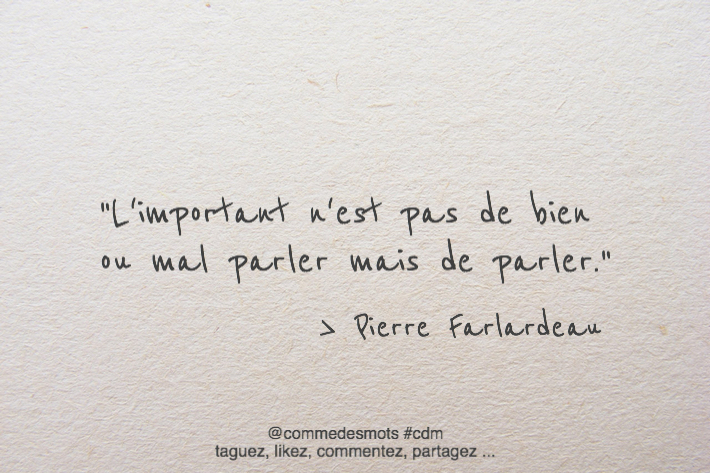 "L'important n'est pas de bien
ou mal parler mais de parler."
> Pierre Farlardeau
@commedesmots #cdm
taguez, likez, commentez, partagez ...